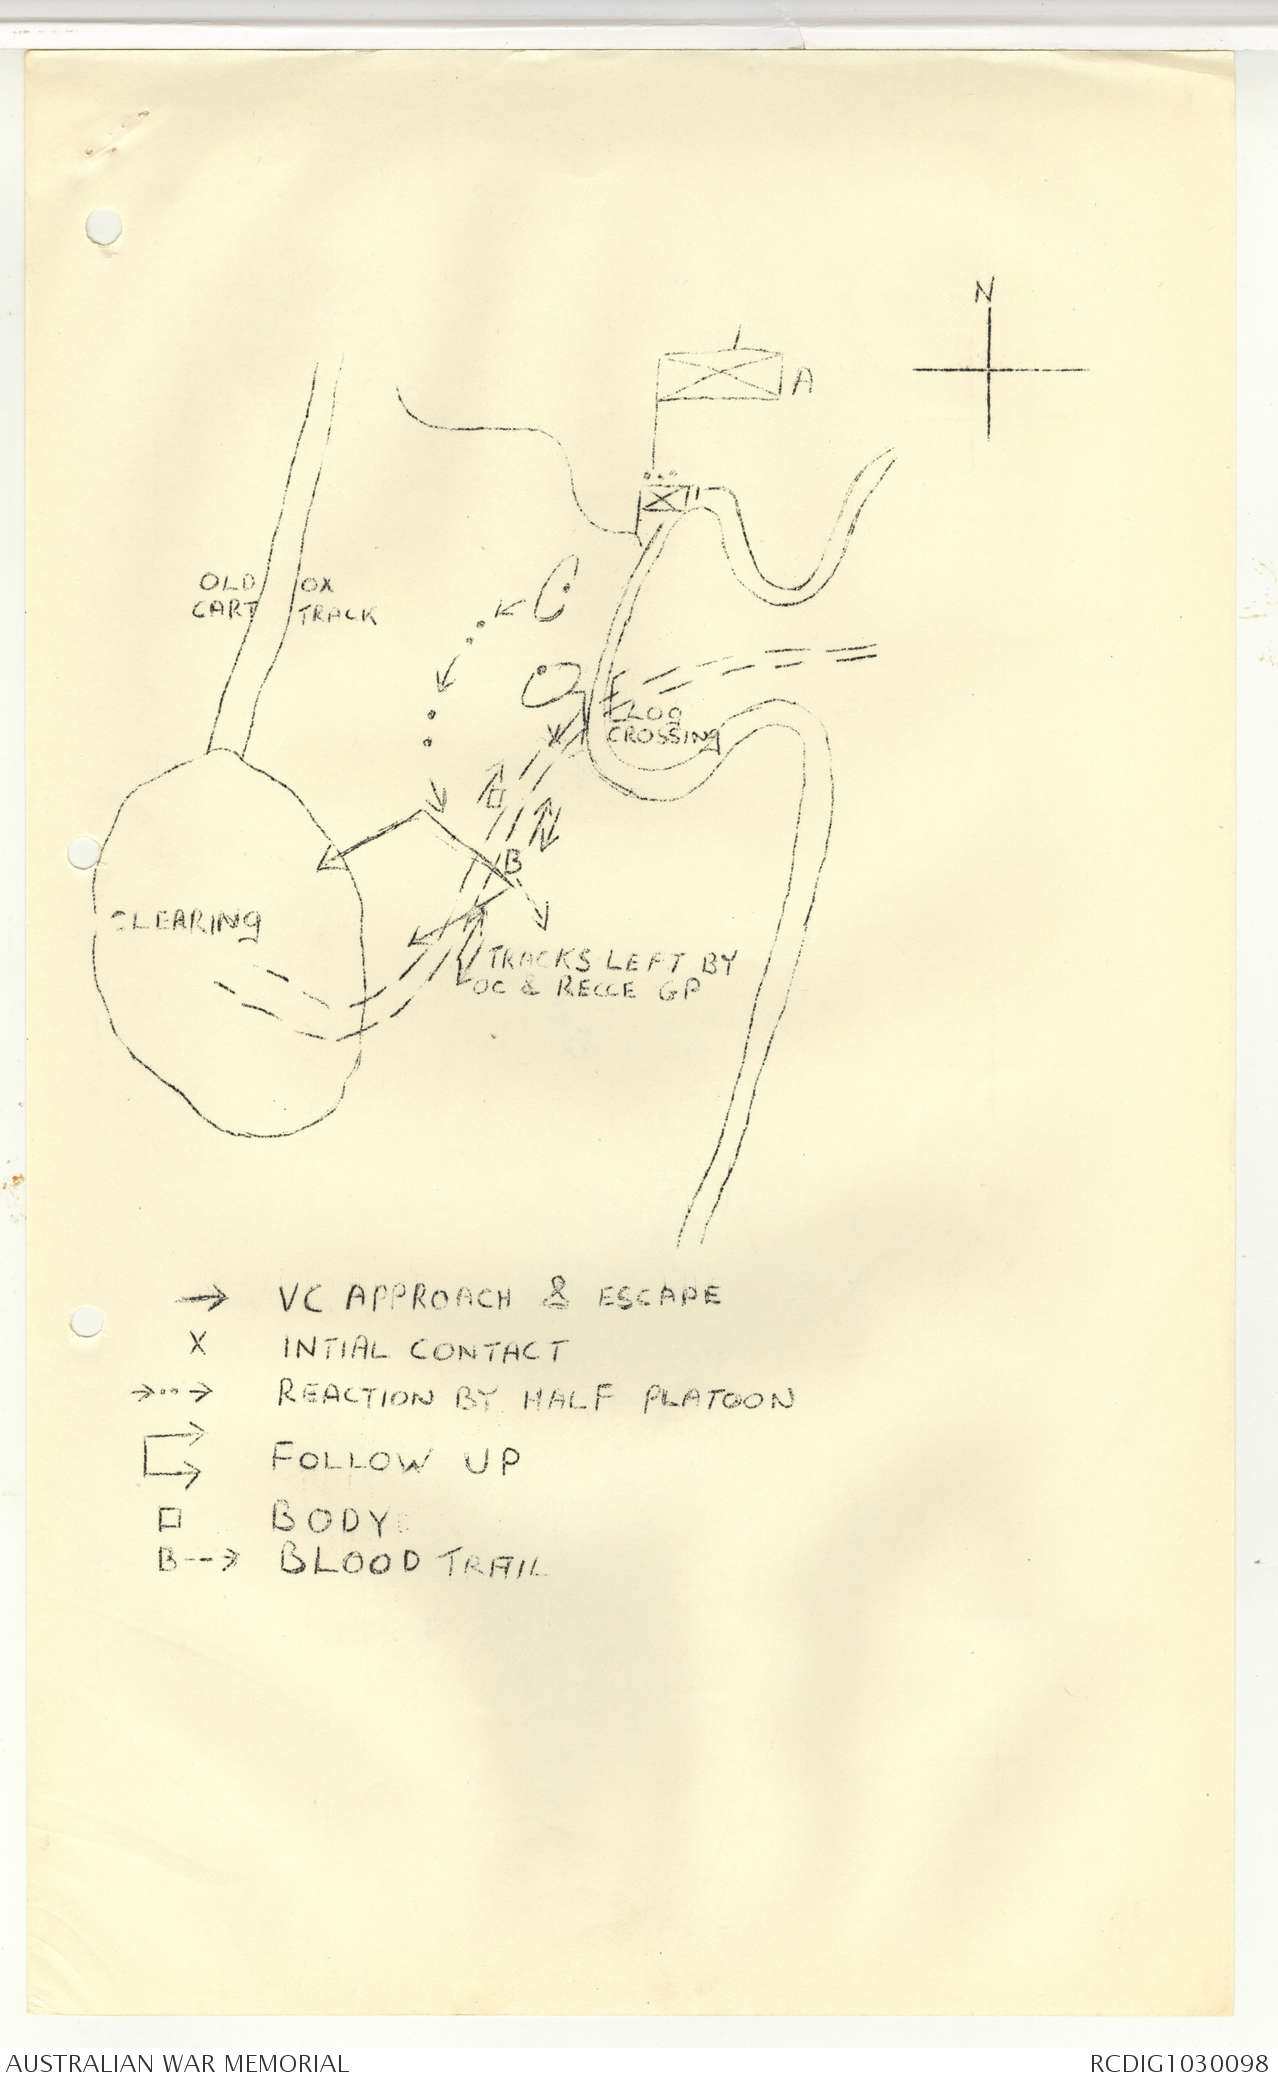 N
A
OLD OX
CART TRACK
LOG
CROSSING
B
CLEARING
TRACKS LEFT BY
OC & RECCE GP
VC APPROACH & ESCAPE
X INTIAL CONTACT
REACTION BY HALF PLATOON
FOLLOW UP
BODY
B BLOOD TRAIL
AUSTRALIAN WAR MEMORIAL
RCDIG1030098